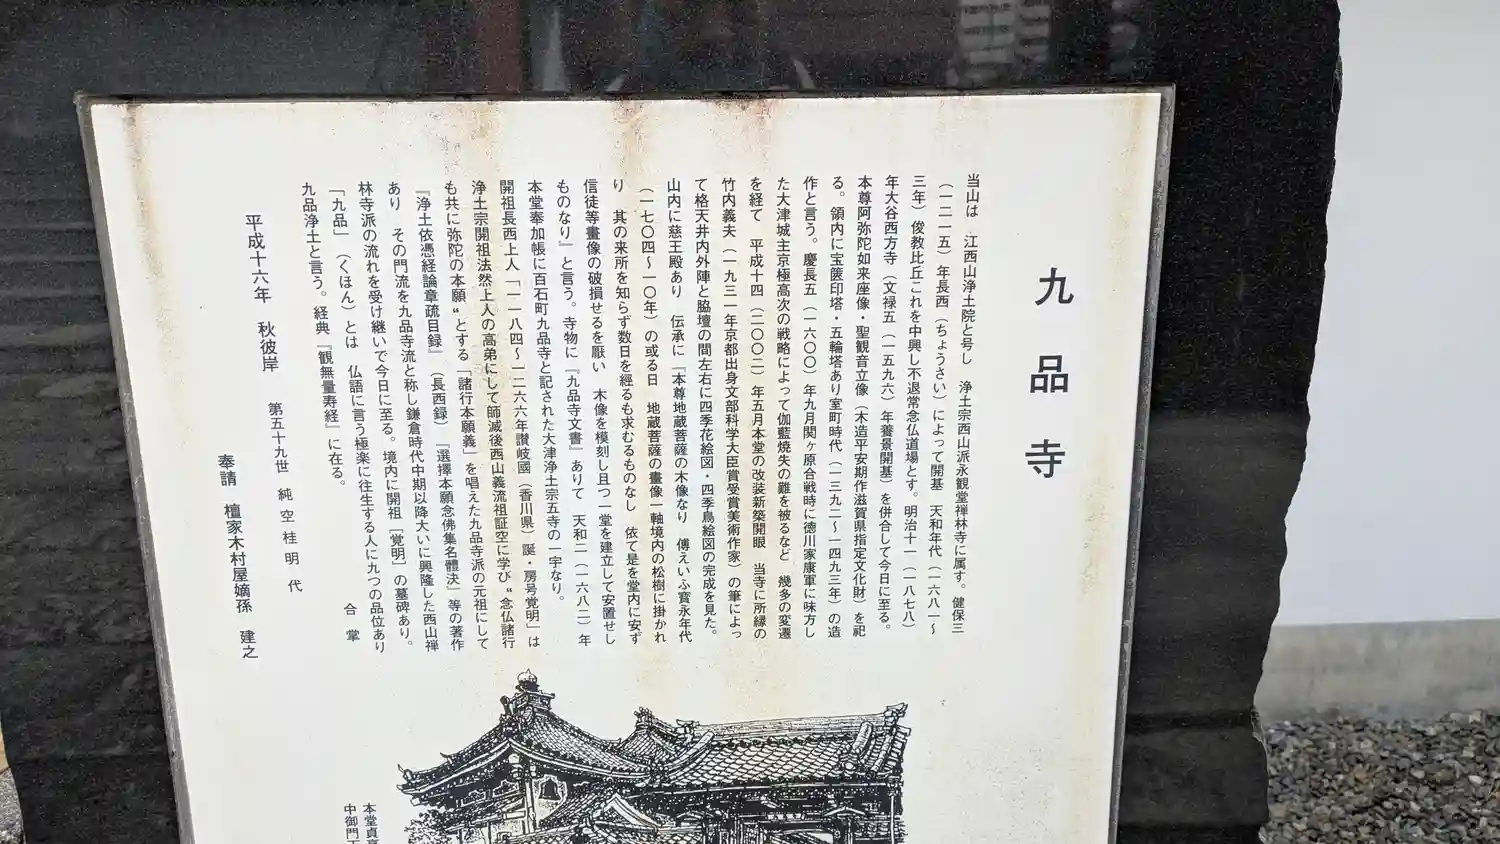 九品寺
当山は　江西山浄土院と号し　浄土宗西山派永観堂禅林寺に属す。健保三
（一二一五）年長西（ちょうさい）によって開基　天和年代（一六八一～
三年）俊教比丘これを中興し不退常念仏道場とす。明治十一（一八七八）
年大谷西方寺（文禄五（一五九六）年養景開基）を併合して今日に至る。
本尊阿弥陀如来座像・聖観音立像（木造平安期作滋賀県指定文化財）を祀
る。領内に宝篋印塔・五輪塔あり室町時代（一三九二～一四九三年）の造
作と言う。慶長五（一六〇〇）年九月関ヶ原合戦時に徳川家康軍に味方し
た大津城主京極高次の戦略によって伽藍焼失の難を被るなど　幾多の変遷
を経て　平成十四（二〇〇二）年五月本堂の改装新築開眼　当寺に所縁の
竹内義夫（一九三一年京都出身文部科学大臣賞受賞美術作家）の筆によっ
て格天井内外陣と脇壇の間左右に四季花絵図・四季鳥絵図の完成を見た。
山内に慈王殿あり　伝承に『本尊地蔵菩薩の木像なり　傅えいふ寳永年代
（一七〇四～一〇年）の或る日　地蔵菩薩の畫像一軸境内の松樹に掛かれ
り　其の来所を知らず数日を經るも求むるものなし　依て是を堂内に安ず
信徒等畫像の破損せるを厭い　木像を模刻し且つ一堂を建立して安置せし
ものなり』と言う。寺物に『九品寺文書』ありて　天和二（一六八二）年
本堂奉加帳に百石町九品寺と記された大津浄土宗五寺の一宇なり。
開祖長西上人「一一八四～一二六六年讃岐國（香川県）誕・房号覚明」は
浄土宗開祖法然上人の高弟にして師滅後西山義流祖証空に学び〝念仏諸行
も共に弥陀の本願〟とする「諸行本願義」を唱えた九品寺派の元祖にして
『浄土依憑経論章疏目録』（長西録）『選擇本願念佛集名體決』等の著作
あり　その門流を九品寺流と称し鎌倉時代中期以降大いに興隆した西山禅
林寺派の流れを受け継いで今日に至る。境内に開祖［覚明］の墓碑あり。
「九品」（くほん）とは　仏語に言う極楽に往生する人に九つの品位あり
九品浄土と言う。経典『観無量寿経』に在る。
合掌
平成十六年　秋彼岸　第五十九世　純空桂明　代
奉請　檀家木村屋嫡孫　建之
本堂貞享
中御門